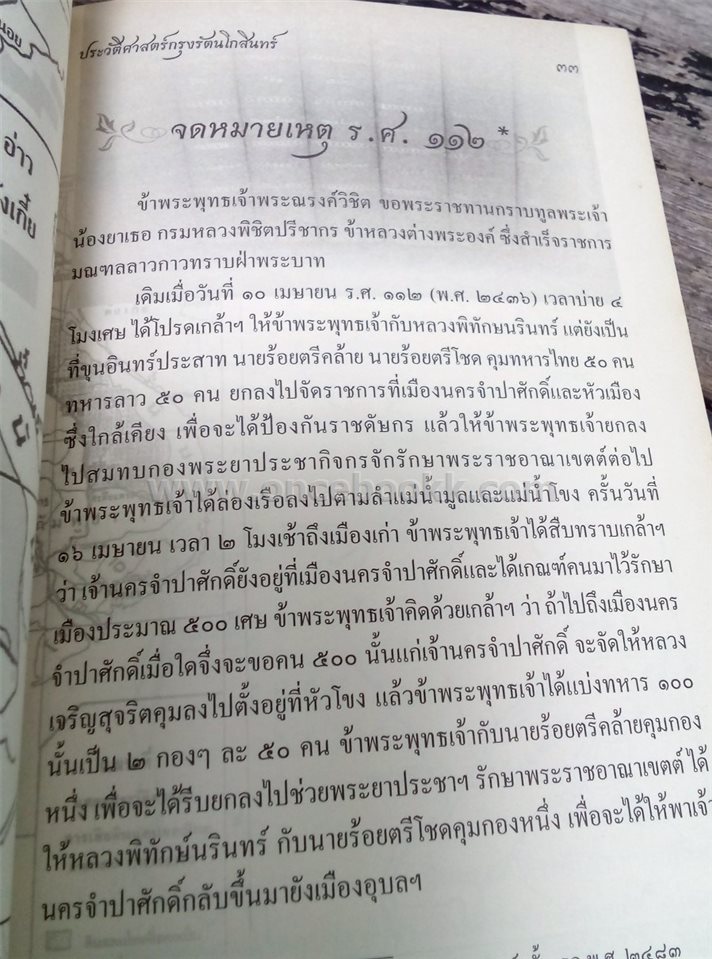 ประวัติศาสตร์กรุงรัตนโกสินทร์
๓๓
จดหมายเหตุ ร.ศ. ๑๑๒ *
ข้าพระพุทธเจ้าพระณรงค์วิชิต ขอพระราชทานกราบทูลพระเจ้า
น้องยาเธอ กรมหลวงพิชิตปรีชากร ข้าหลวงต่างพระองค์ ซึ่งสำเร็จราชการ
มณฑลลาวกาวทราบฝ่าพระบาท
เดิมเมื่อวันที่ ๑๐ เมษายน ร.ศ. ๑๑๒ (พ.ศ. ๒๔๓๖) เวลาบ่าย ๔
โมงเศษ ได้โปรดเกล้าฯ ให้ข้าพระพุทธเจ้ากับหลวงพิทักษนรินทร์ แต่ยังเป็น
ที่ขุนอินทร์ประสาท นายร้อยตรีคล้าย นายร้อยตรีโชด คุมทหารไทย ๕๐ คน
ทหารลาว ๕๐ คน ยกลงไปจัดราชการที่เมืองนครจำปาศักดิ์และหัวเมือง
ซึ่งใกล้เคียง เพื่อจะได้ป้องกันราชดัษกร แล้วให้ข้าพระพุทธเจ้ายกลง
ไปสมทบกองพระยาประชากิจกรจักรักษาพระราชอาณาเขตต์ต่อไป
ข้าพระพุทธเจ้าได้ล่องเรือลงไปตามลำแม่น้ำมูลและแม่น้ำโขง ครั้นวันที่
๑๖ เมษายน เวลา ๒ โมงเช้าถึงเมืองเก่า ข้าพระพุทธเจ้าได้สืบทราบเกล้าฯ
ว่า เจ้านครจำปาศักดิ์ยังอยู่ที่เมืองนครจำปาศักดิ์และได้เกณฑ์คนมาไว้รักษา
เมืองประมาณ ๕๐๐ เศษ ข้าพระพุทธเจ้าคิดด้วยเกล้าฯ ว่า ถ้าไปถึงเมืองนคร
จำปาศักดิ์เมื่อใดจึงจะขอคน ๕๐๐ นั้นแก่เจ้านครจำปาศักดิ์ จะจัดให้หลวง
เจริญสุจริตคุมลงไปตั้งอยู่ที่หัวโขง แล้วข้าพระพุทธเจ้าได้แบ่งทหาร ๑๐๐
นั้นเป็น ๒ กองๆ ละ ๕๐ คน ข้าพระพุทธเจ้ากับนายร้อยตรีคล้ายคุมกอง
หนึ่ง เพื่อจะได้รีบยกลงไปช่วยพระยาประชาฯ รักษาพระราชอาณาเขตต์ ได้
ให้หลวงพิทักษ์นรินทร์ กับนายร้อยตรีโชดคุมกองหนึ่ง เพื่อจะได้ให้พาเจ้า
นครจำปาศักดิ์กลับขึ้นมายังเมืองอุบลฯ
พ.ศ. ๒๔๘๓